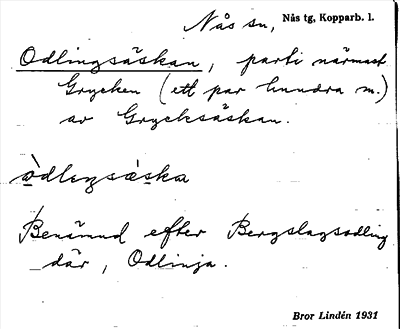 Nås sn, Nås tg, Kopparb. l.
Odlingsäskan, parti närmast
Grycken (ett par hundra m.)
av Grycksäskan.
òdlıŋsàska
Benämnd efter Bergslagsodling
där, Odlinja.
Bror Lindén 1931